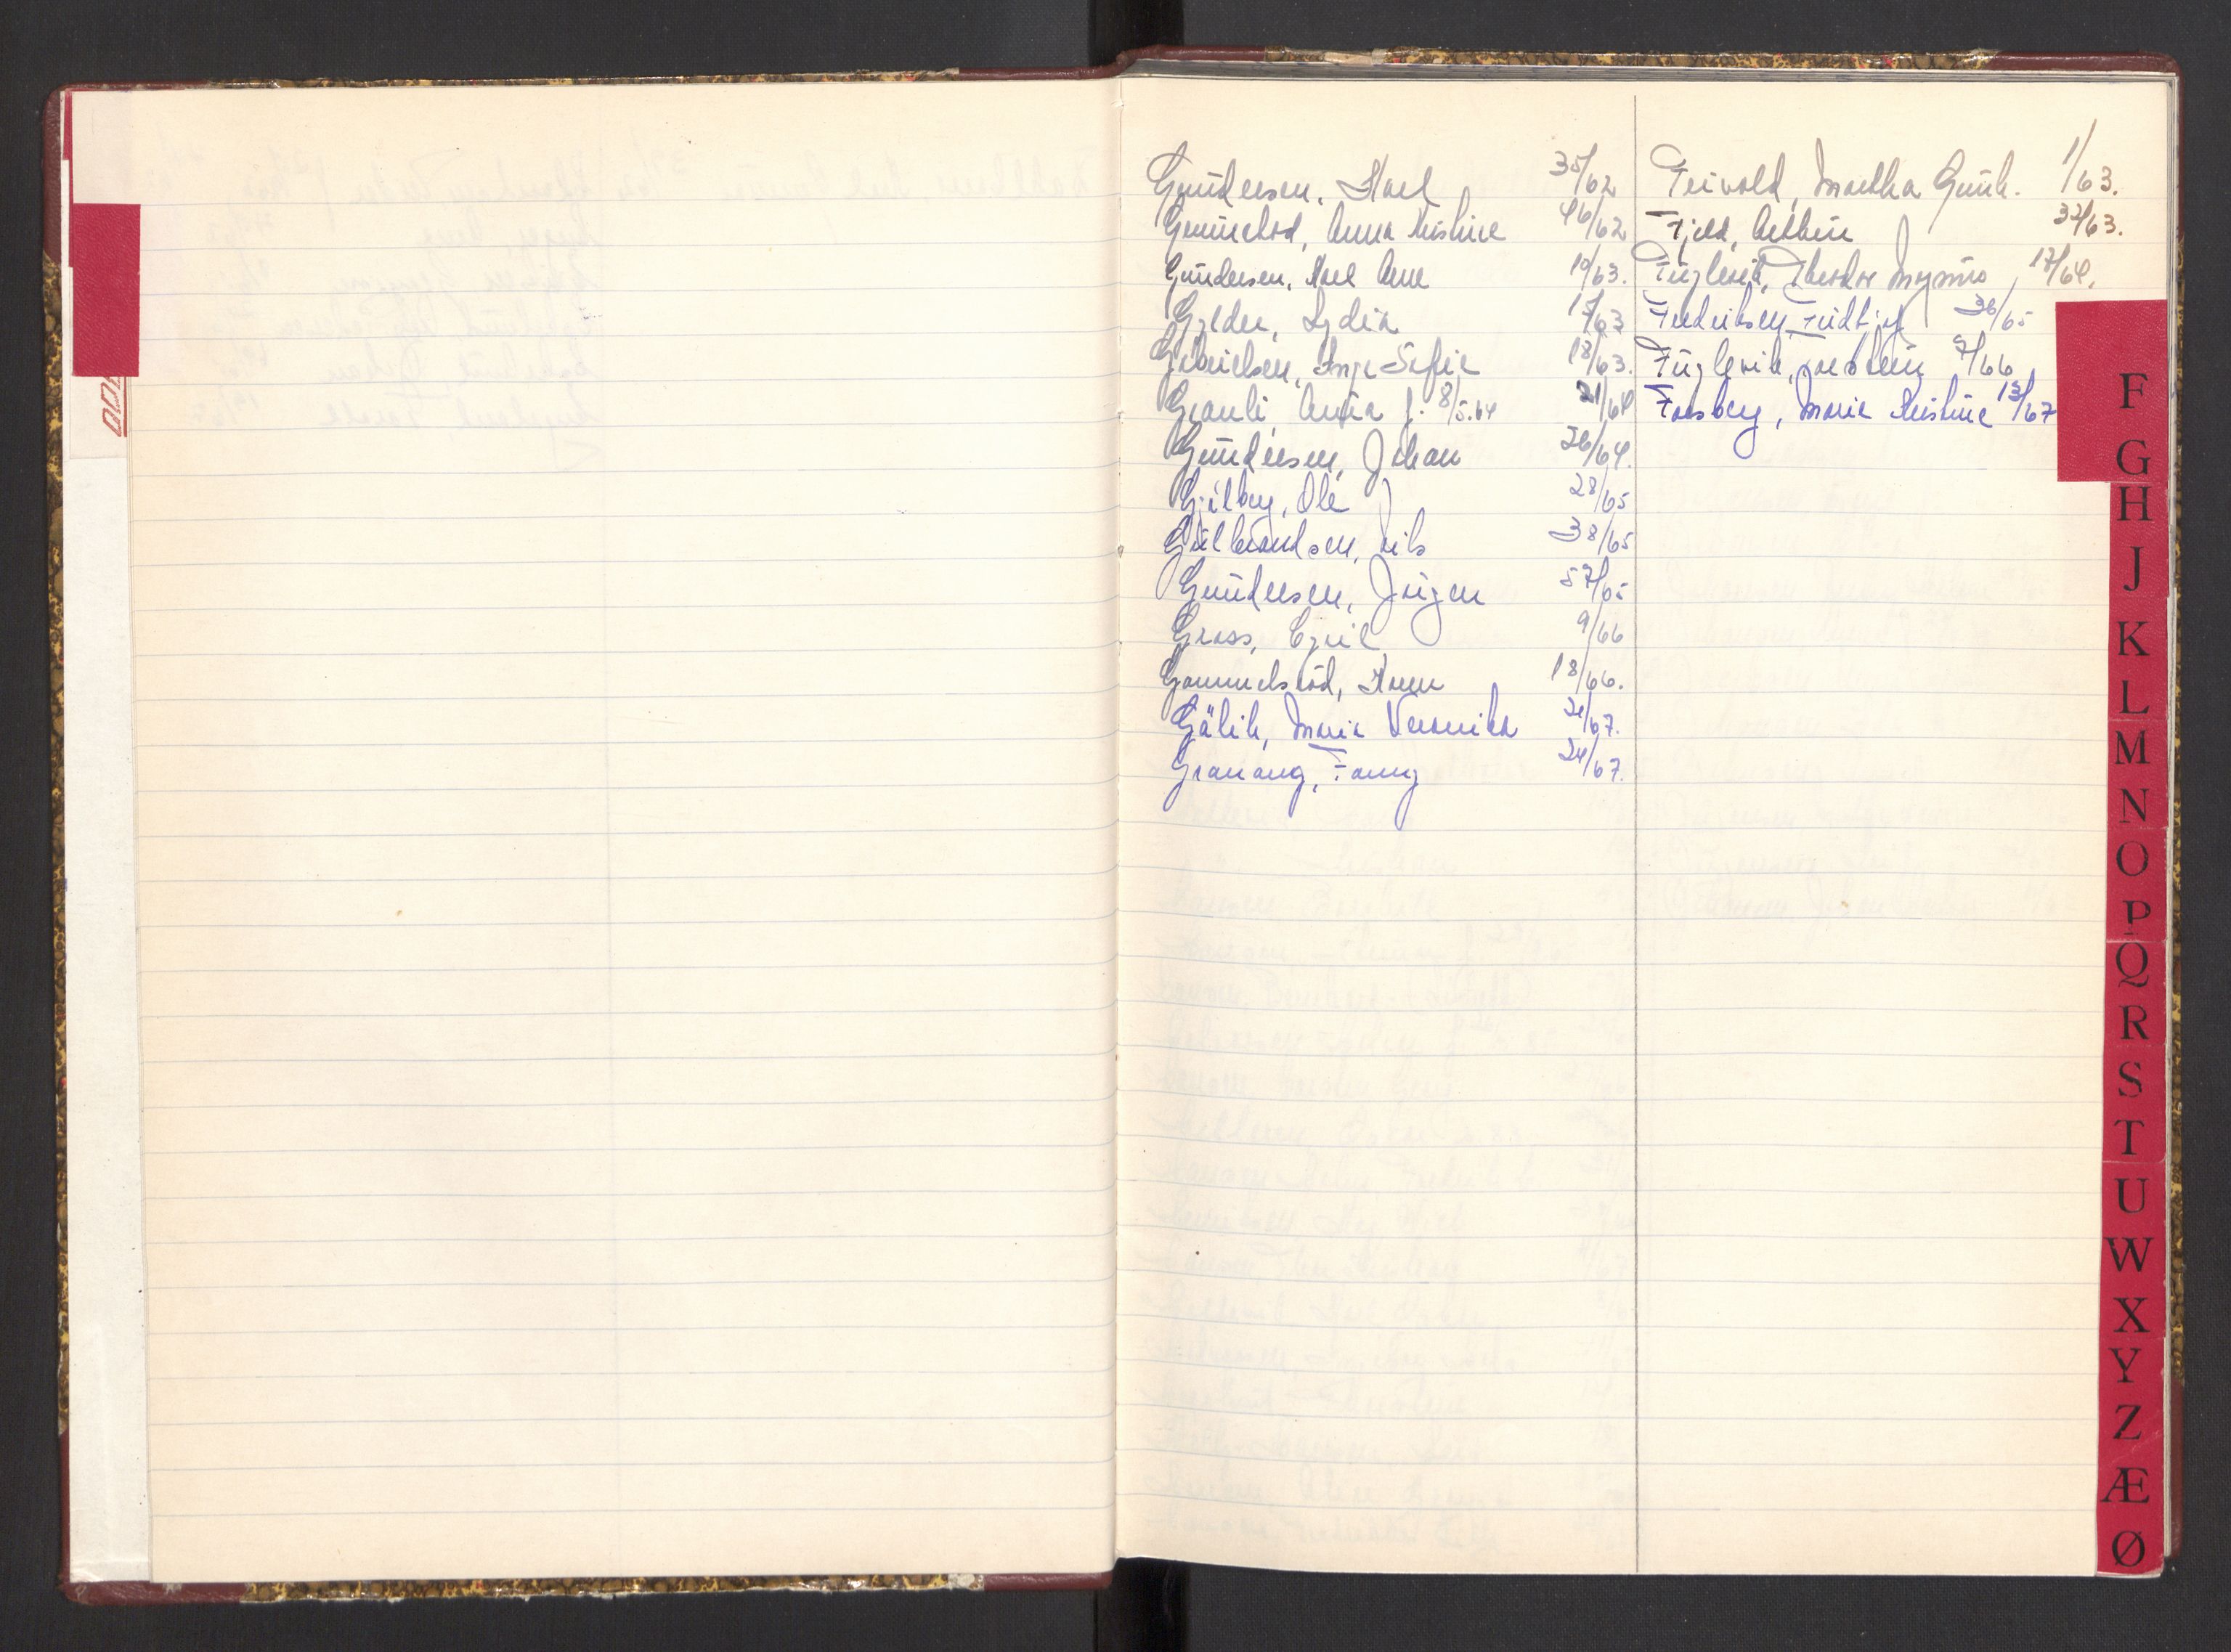 Gundersen, Karl 35/62
Grimelid, Anna Kristine 46/62
Gundersen, Karl Arne 10/63.
Gylder, Lydia 15/63
Gabrielsen, Inga Sofie 18/63.
Grauli, Anna f. 8/5.64 21/64
Gundersen, Johan 26/64.
Gjilberg, Ole 28/65
Gulbrandsen, Nils 38/65
Gundersen, Jörgen 57/65
Grøss, Cyril 9/66
Gammelsröd, Karen 18/66.
Gálik, Maria Veronika 21/67.
Granang, Fanny 24/67.
Freivold, Martha Gunh. 1/63.
Fjeld, Arthur 32/63.
Fuglevik, Theodor Magnus, 17/64.
Fredriksen, Fridtjof 36/65
Fuglevik, 7/66
Forsberg, Marie Kristine 13/67
F
G
H
J
K
L
M
N
O
P
Q
R
S
T
U
W
X
Y
Z
Æ
Ø